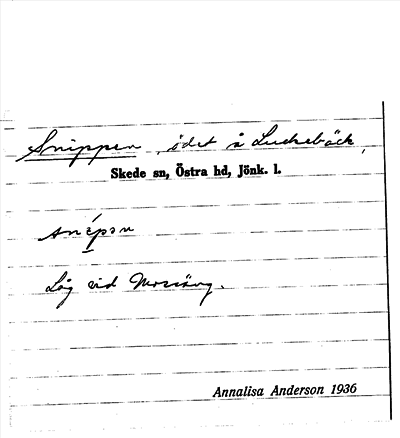 Snippen, ödet å Luckebäck,
Skede sn, Östra hd, Jönk. l.
snépən
Låg vid Mossäng.
Annalisa Anderson 1936